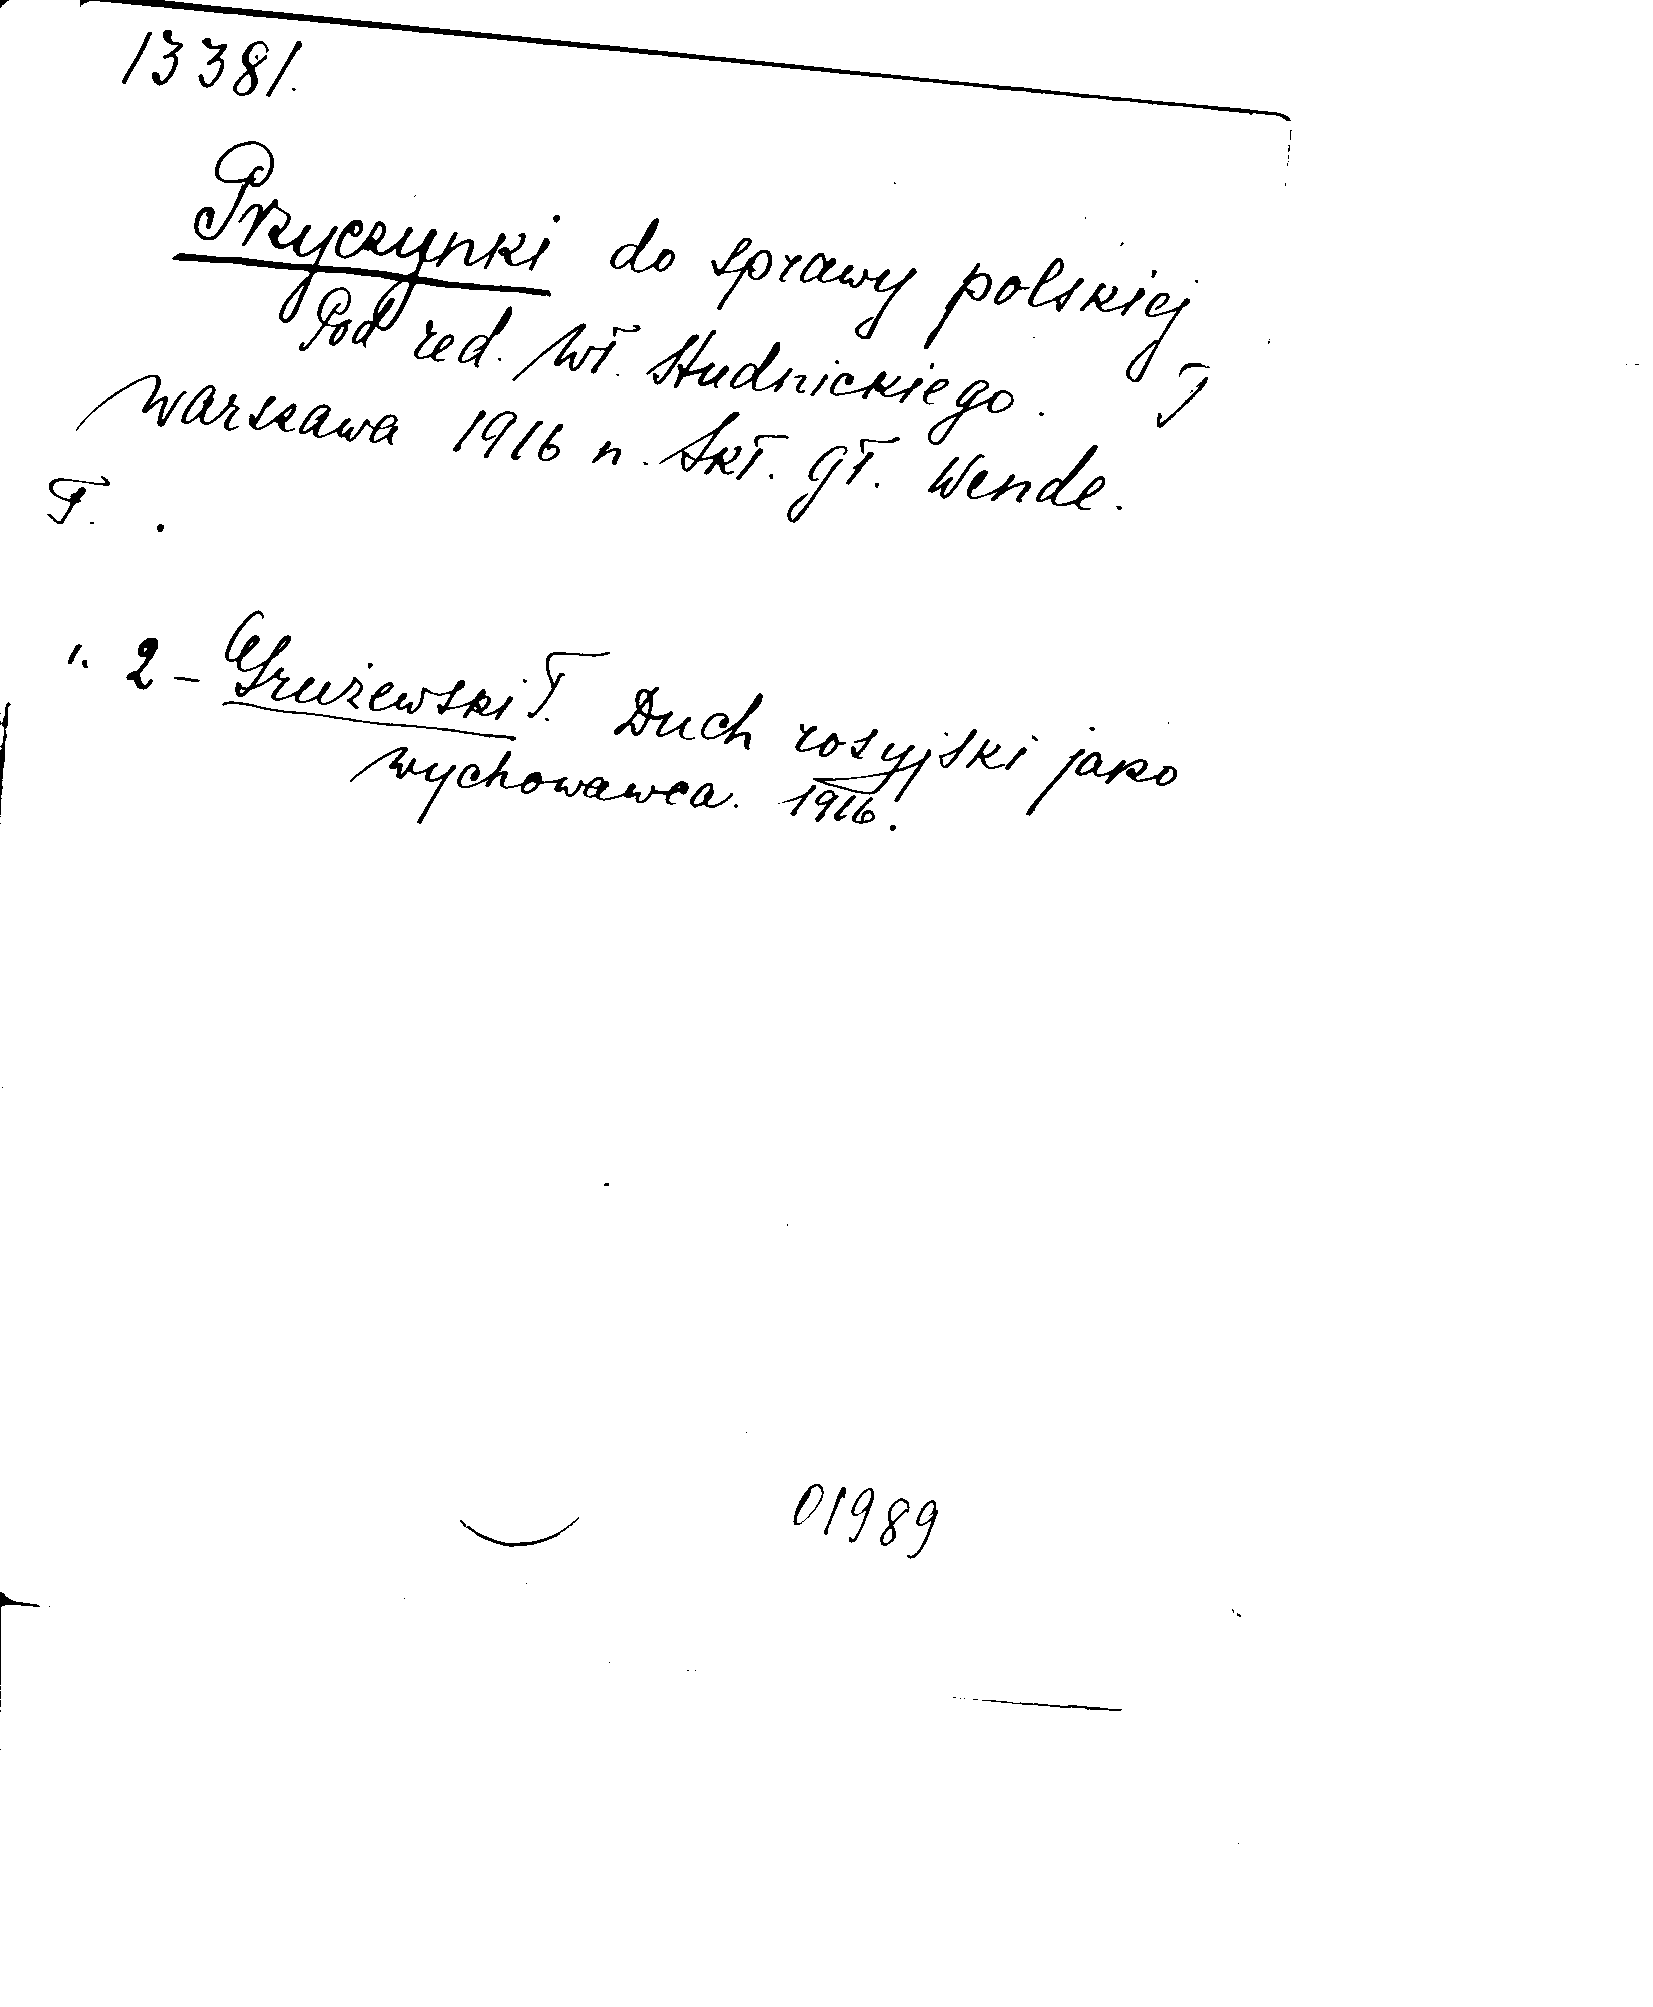 13381.
Przyczynki do sprawy polskiej
Pod red. Wł. Studnickiego.
Warszawa 1916 n. Skł. gł. Wende.
T.
2 - Grużewski T. Duch rosyjski jako
wychowawca. 1916.
01989